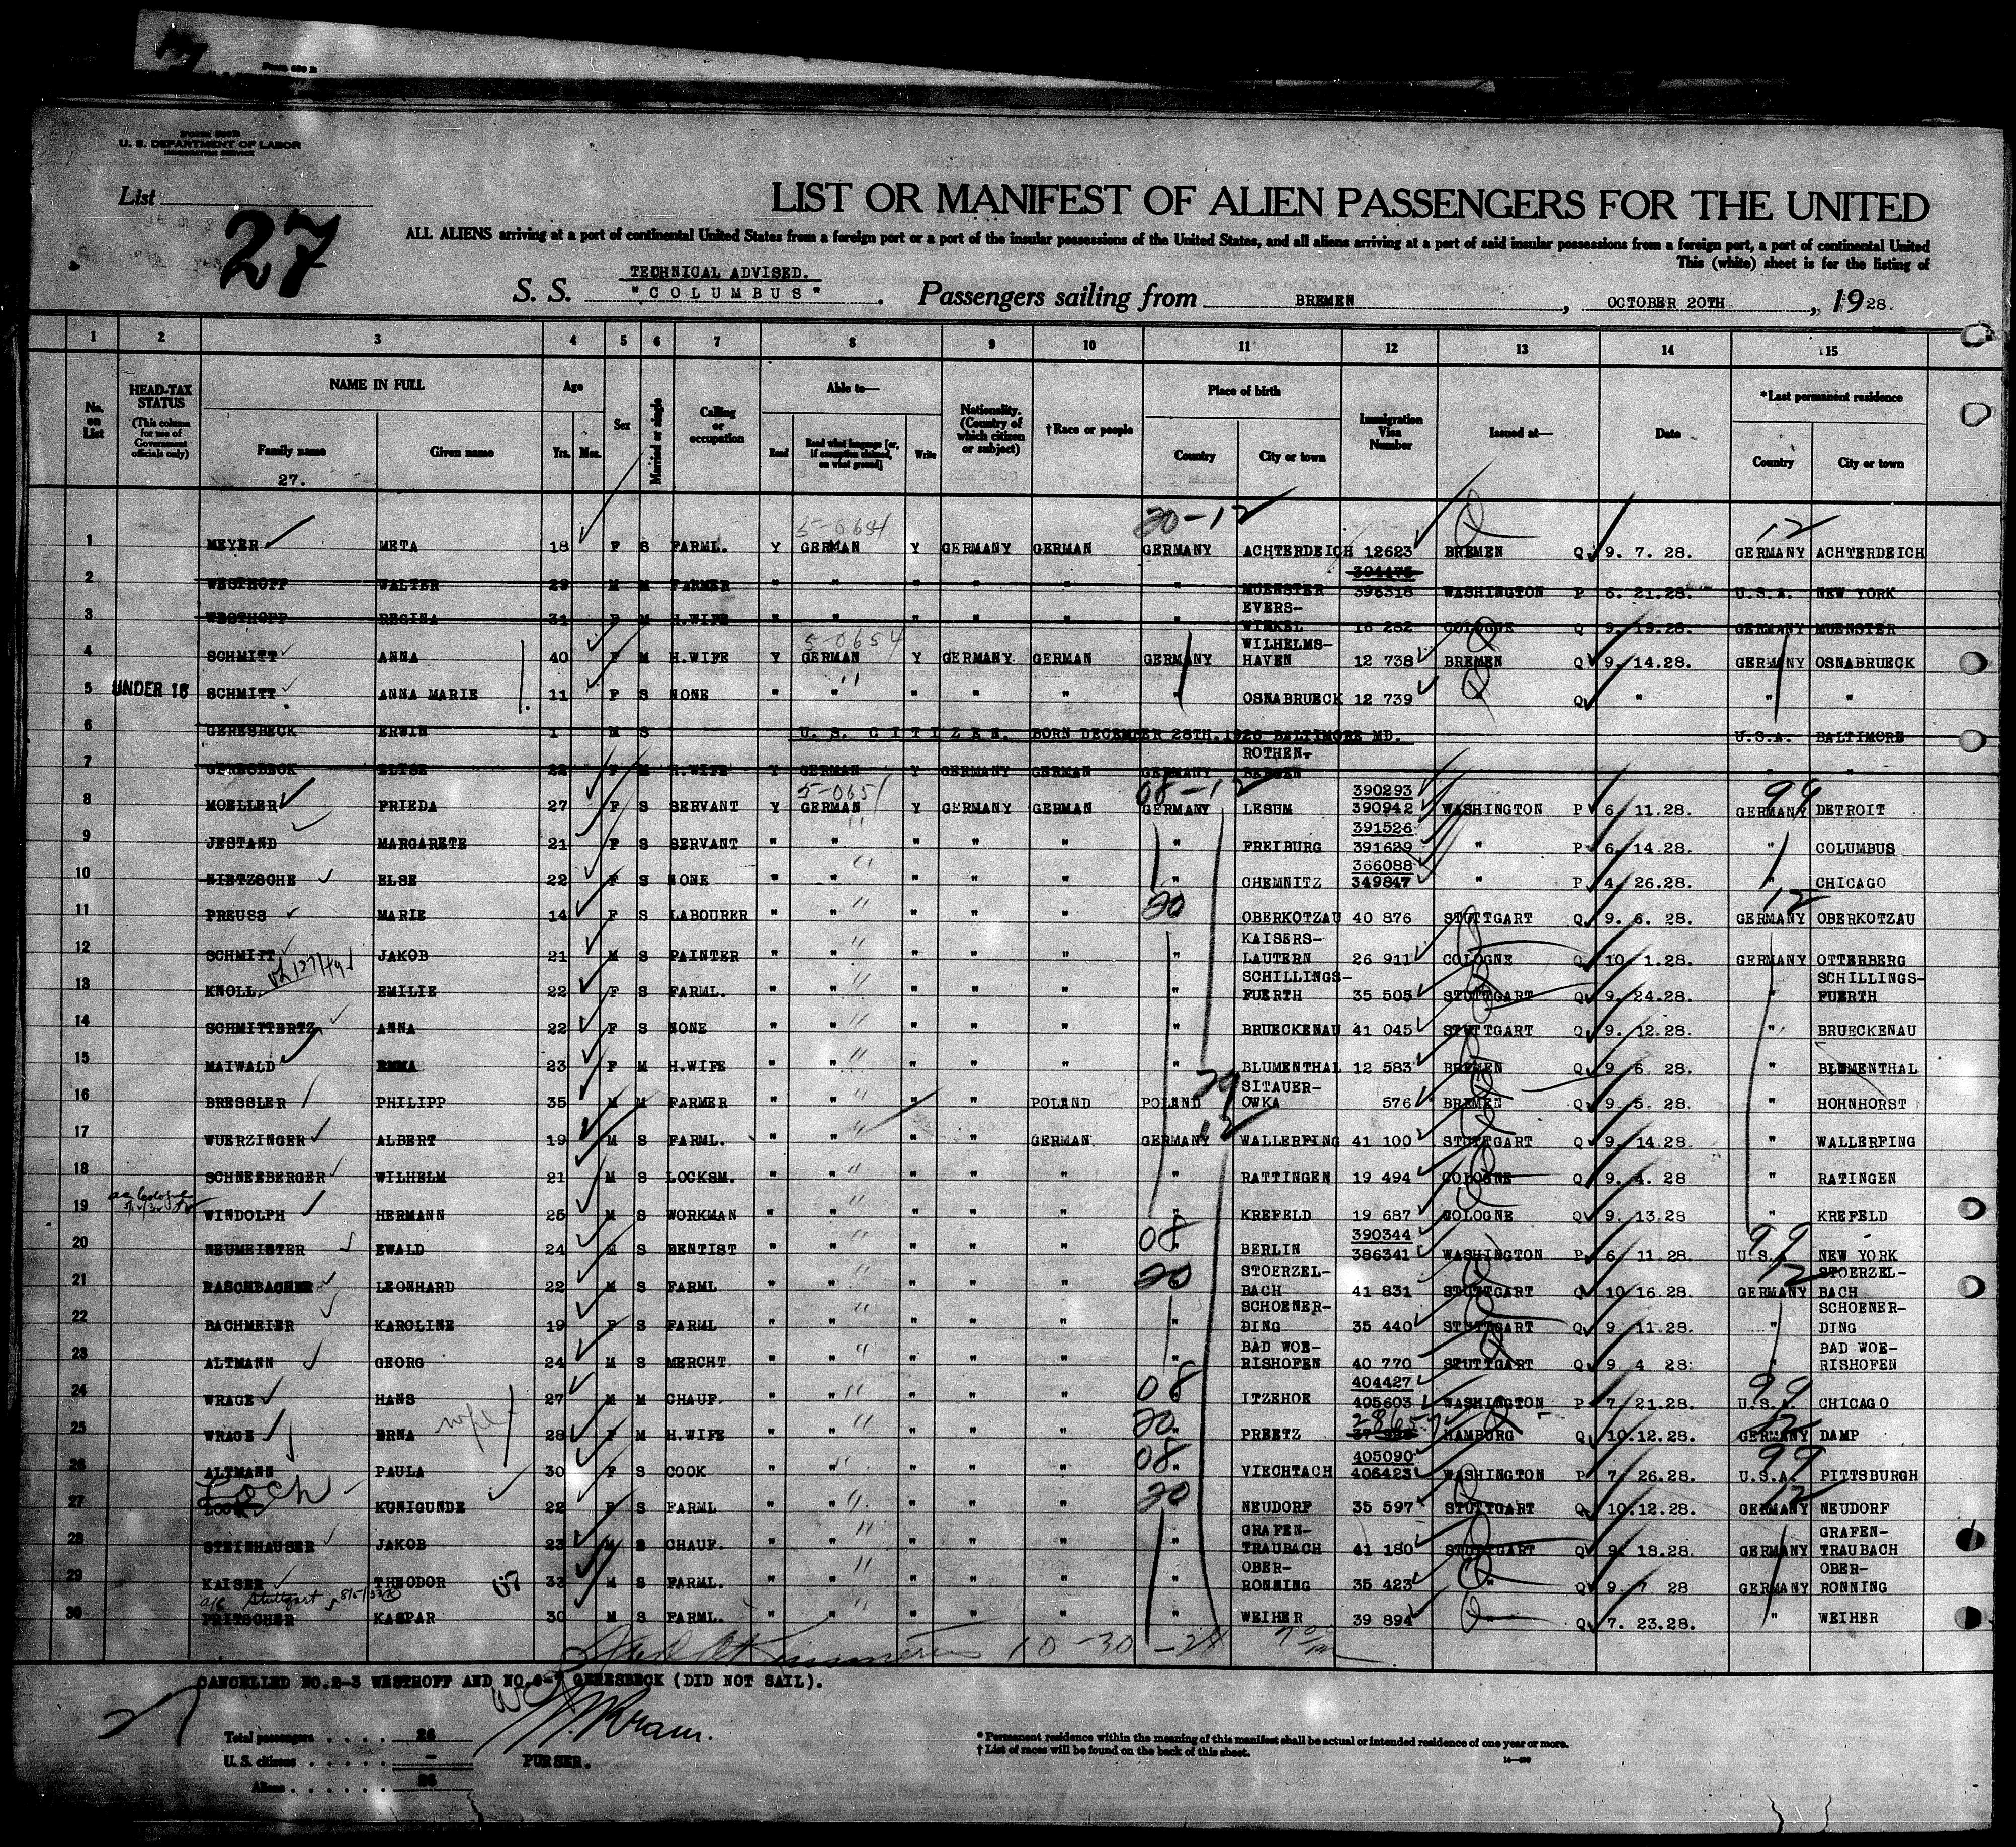 Form 500B
U. S. DEPARTMENT OF LABOR
IMMIGRATION SERVICE
List
27
LIST OR MANIFEST OF ALIEN PASSENGERS FOR THE UNITED
ALL ALIENS arriving at a port of continental United States from a foreign port or a port of the insular possessions of the United States, and all aliens arriving at a port of said insular possessions from a foreign port, a port of continental United
This (white) sheet is for the listing of
TECHNICAL ADVISED.
S. S. "COLUMBUS". Passengers sailing from BREMEN, OCTOBER 20TH, 1928.
1 2 3 4 5 6 7 8 9 10 11 12 13 14 15
No. on List
HEAD-TAX STATUS (This column for use of Government officials only)
NAME IN FULL Family name Given name
27.
Age Yrs. Mos.
Sex
Married or single
Calling or occupation
Able to— Read Read what language [or, if exemption claimed, on what ground] Write
Nationality. (Country of which citizen or subject)
†Race or people
Place of birth Country City or town
Immigration Visa Number
Issued at—
Date
*Last permanent residence Country City or town
20-12 5-0654 12
1 MEYER META 18 F S FARML. Y GERMAN Y GERMANY GERMAN GERMANY ACHTERDEICH 12623 BREMEN Q 9. 7. 28. GERMANY ACHTERDEICH
2 WESTHOFF WALTER 29 M M FARMER " " " " " " MUENSTER 394475 396318 WASHINGTON P 6. 21.28. U.S.A. NEW YORK
3 WESTHOFF REGINA 31 F M H.WIFE " " " " " " EVERS-WINKEL 16 282 COLOGNE Q 9. 19.28. GERMANY MUENSTER
5-0654
4 SCHMITT ANNA 40 F M H.WIFE Y GERMAN Y GERMANY GERMAN GERMANY WILHELMS-HAVEN 12 738 BREMEN Q 9. 14.28. GERMANY OSNABRUECK
5 UNDER 16 SCHMITT ANNA MARIE 11 F S NONE " " " " " " OSNABRUECK 12 739 Q " " "
6 GERESBECK ERWIN 1 M S U.S. CITIZEN. BORN DECEMBER 28TH.1926 BALTIMORE MD. U.S.A. BALTIMORE
7 GERESBECK ELISE 22 F M H.WIFE Y GERMAN Y GERMANY GERMAN GERMANY ROTHEN-BERGEN " "
5-0651 08-12 99
8 MOELLER FRIEDA 27 F S SERVANT Y GERMAN Y GERMANY GERMAN GERMANY LESUM 390293 390942 WASHINGTON P 6. 11.28. GERMANY DETROIT
9 JESTAND MARGARETE 21 F S SERVANT " " " " " " FREIBURG 391526 391629 " P 6. 14.28. " COLUMBUS
10 NIETZSCHE ELSE 22 F S NONE " " " " " " CHEMNITZ 366088 349847 " P 4. 26.28. " CHICAGO
20 12
11 PREUSS MARIE 14 F S LABOURER " " " " " OBERKOTZAU 40 876 STUTTGART Q 9. 6. 28. GERMANY OBERKOTZAU
12 SCHMITT JAKOB 21 M S PAINTER " " " " " " KAISERS-LAUTERN 26 911 COLOGNE Q 10. 1.28. GERMANY OTTERBERG
13 KNOLL EMILIE 22 F S FARML. " " " " " " SCHILLINGS-FUERTH 35 505 STUTTGART Q 9. 24.28. " SCHILLINGS-FUERTH
14 SCHMITTBERTZ ANNA 22 F S NONE " " " " " " BRUECKENAU 41 045 STUTTGART Q 9. 12.28. " BRUECKENAU
15 MAIWALD EMMA 23 F M H.WIFE " " " " " " BLUMENTHAL 12 583 BREMEN Q 9. 6. 28. " BLUMENTHAL
16 BRESSLER PHILIPP 35 M M FARMER " " " " POLAND POLAND SITAUER-OWKA 576 BREMEN Q 9. 5. 28. " HOHNHORST
17 WUERZINGER ALBERT 19 M S FARML. " " " " GERMAN GERMANY 12 WALLERFING 41 100 STUTTGART Q 9. 14.28. " WALLERFING
18 SCHNEEBERGER WILHELM 21 M S LOCKSM. " " " " " " RATTINGEN 19 494 COLOGNE Q 9. 4. 28 " RATINGEN
19 WINDOLPH HERMANN 25 M S WORKMAN " " " " " " KREFELD 19 687 COLOGNE Q 9. 13.28 " KREFELD
20 NEUMEISTER EWALD 24 M S DENTIST " " " " " 08 BERLIN 390344 386341 WASHINGTON P 6. 11.28. U.S.A. 99 NEW YORK
21 RASCHBACHER LEONHARD 22 M S FARML " " " " " 20 STOERZEL-BACH 41 831 STUTTGART Q 10. 16.28. GERMANY 12 STOERZEL-BACH
22 BACHMEIER KAROLINE 19 F S FARML " " " " " " SCHOENER-DING 35 440 STUTTGART Q 9. 11.28. " SCHOENER-DING
23 ALTMANN GEORG 24 M S MERCHT. " " " " " " BAD WOE-RISHOFEN 40 770 STUTTGART Q 9. 4 28. " BAD WOE-RISHOFEN
24 WRAGE HANS 27 M M CHAUF. " " " " " 08 ITZEHOE 404427 405603 WASHINGTON P 7. 21.28. U.S.A. 99 CHICAGO
25 WRAGE ERNA wife 28 F M H.WIFE " " " " " 20 PREETZ 28657 HAMBURG Q 10.12.28. GERMANY 12 DAMP
26 ALTMANN PAULA 30 F S COOK " " " " " 08 VIECHTACH 405090 406423 WASHINGTON P 7. 26.28. U.S.A. 99 PITTSBURGH
27 Loch KUNIGUNDE 22 F S FARML " " " " " 20 NEUDORF 35 597 STUTTGART Q 10.12.28. GERMANY 12 NEUDORF
28 STEINHAUSER JAKOB 23 M S CHAUF. " " " " " " GRAFEN-TRAUBACH 41 180 STUTTGART Q 9. 18.28. GERMANY GRAFEN-TRAUBACH
29 KAISER THEODOR 33 M S FARML. " " " " " " OBER-RONNING 35 423 " Q 9. 7 28 GERMANY OBER-RONNING
Stuttgart
30 FRITSCHER KASPAR 30 M S FARML. " " " " " " WEIHER 39 894 " Q 7. 23.28. " WEIHER
10-30-28
CANCELLED NO.2-3 WESTHOFF AND NO.6-7 GERESBECK (DID NOT SAIL).
Total passengers . . . . 26
U. S. citizens . . . . . –
Aliens . . . . . . 26
PURSER.
* Permanent residence within the meaning of this manifest shall be actual or intended residence of one year or more.
† List of races will be found on the back of this sheet.